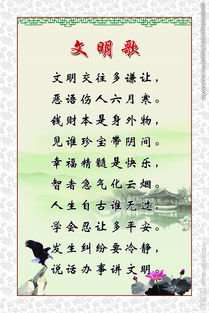 文明歌
文明交往多谦让，
恶语伤人六月寒。
钱财本是身外物，
见谁珍宝带阴间。
幸福精髓是快乐，
智者急气化云烟。
人生自古谁无过，
学会忍让多平安。
发生纠纷要冷静，
说话办事讲文明。